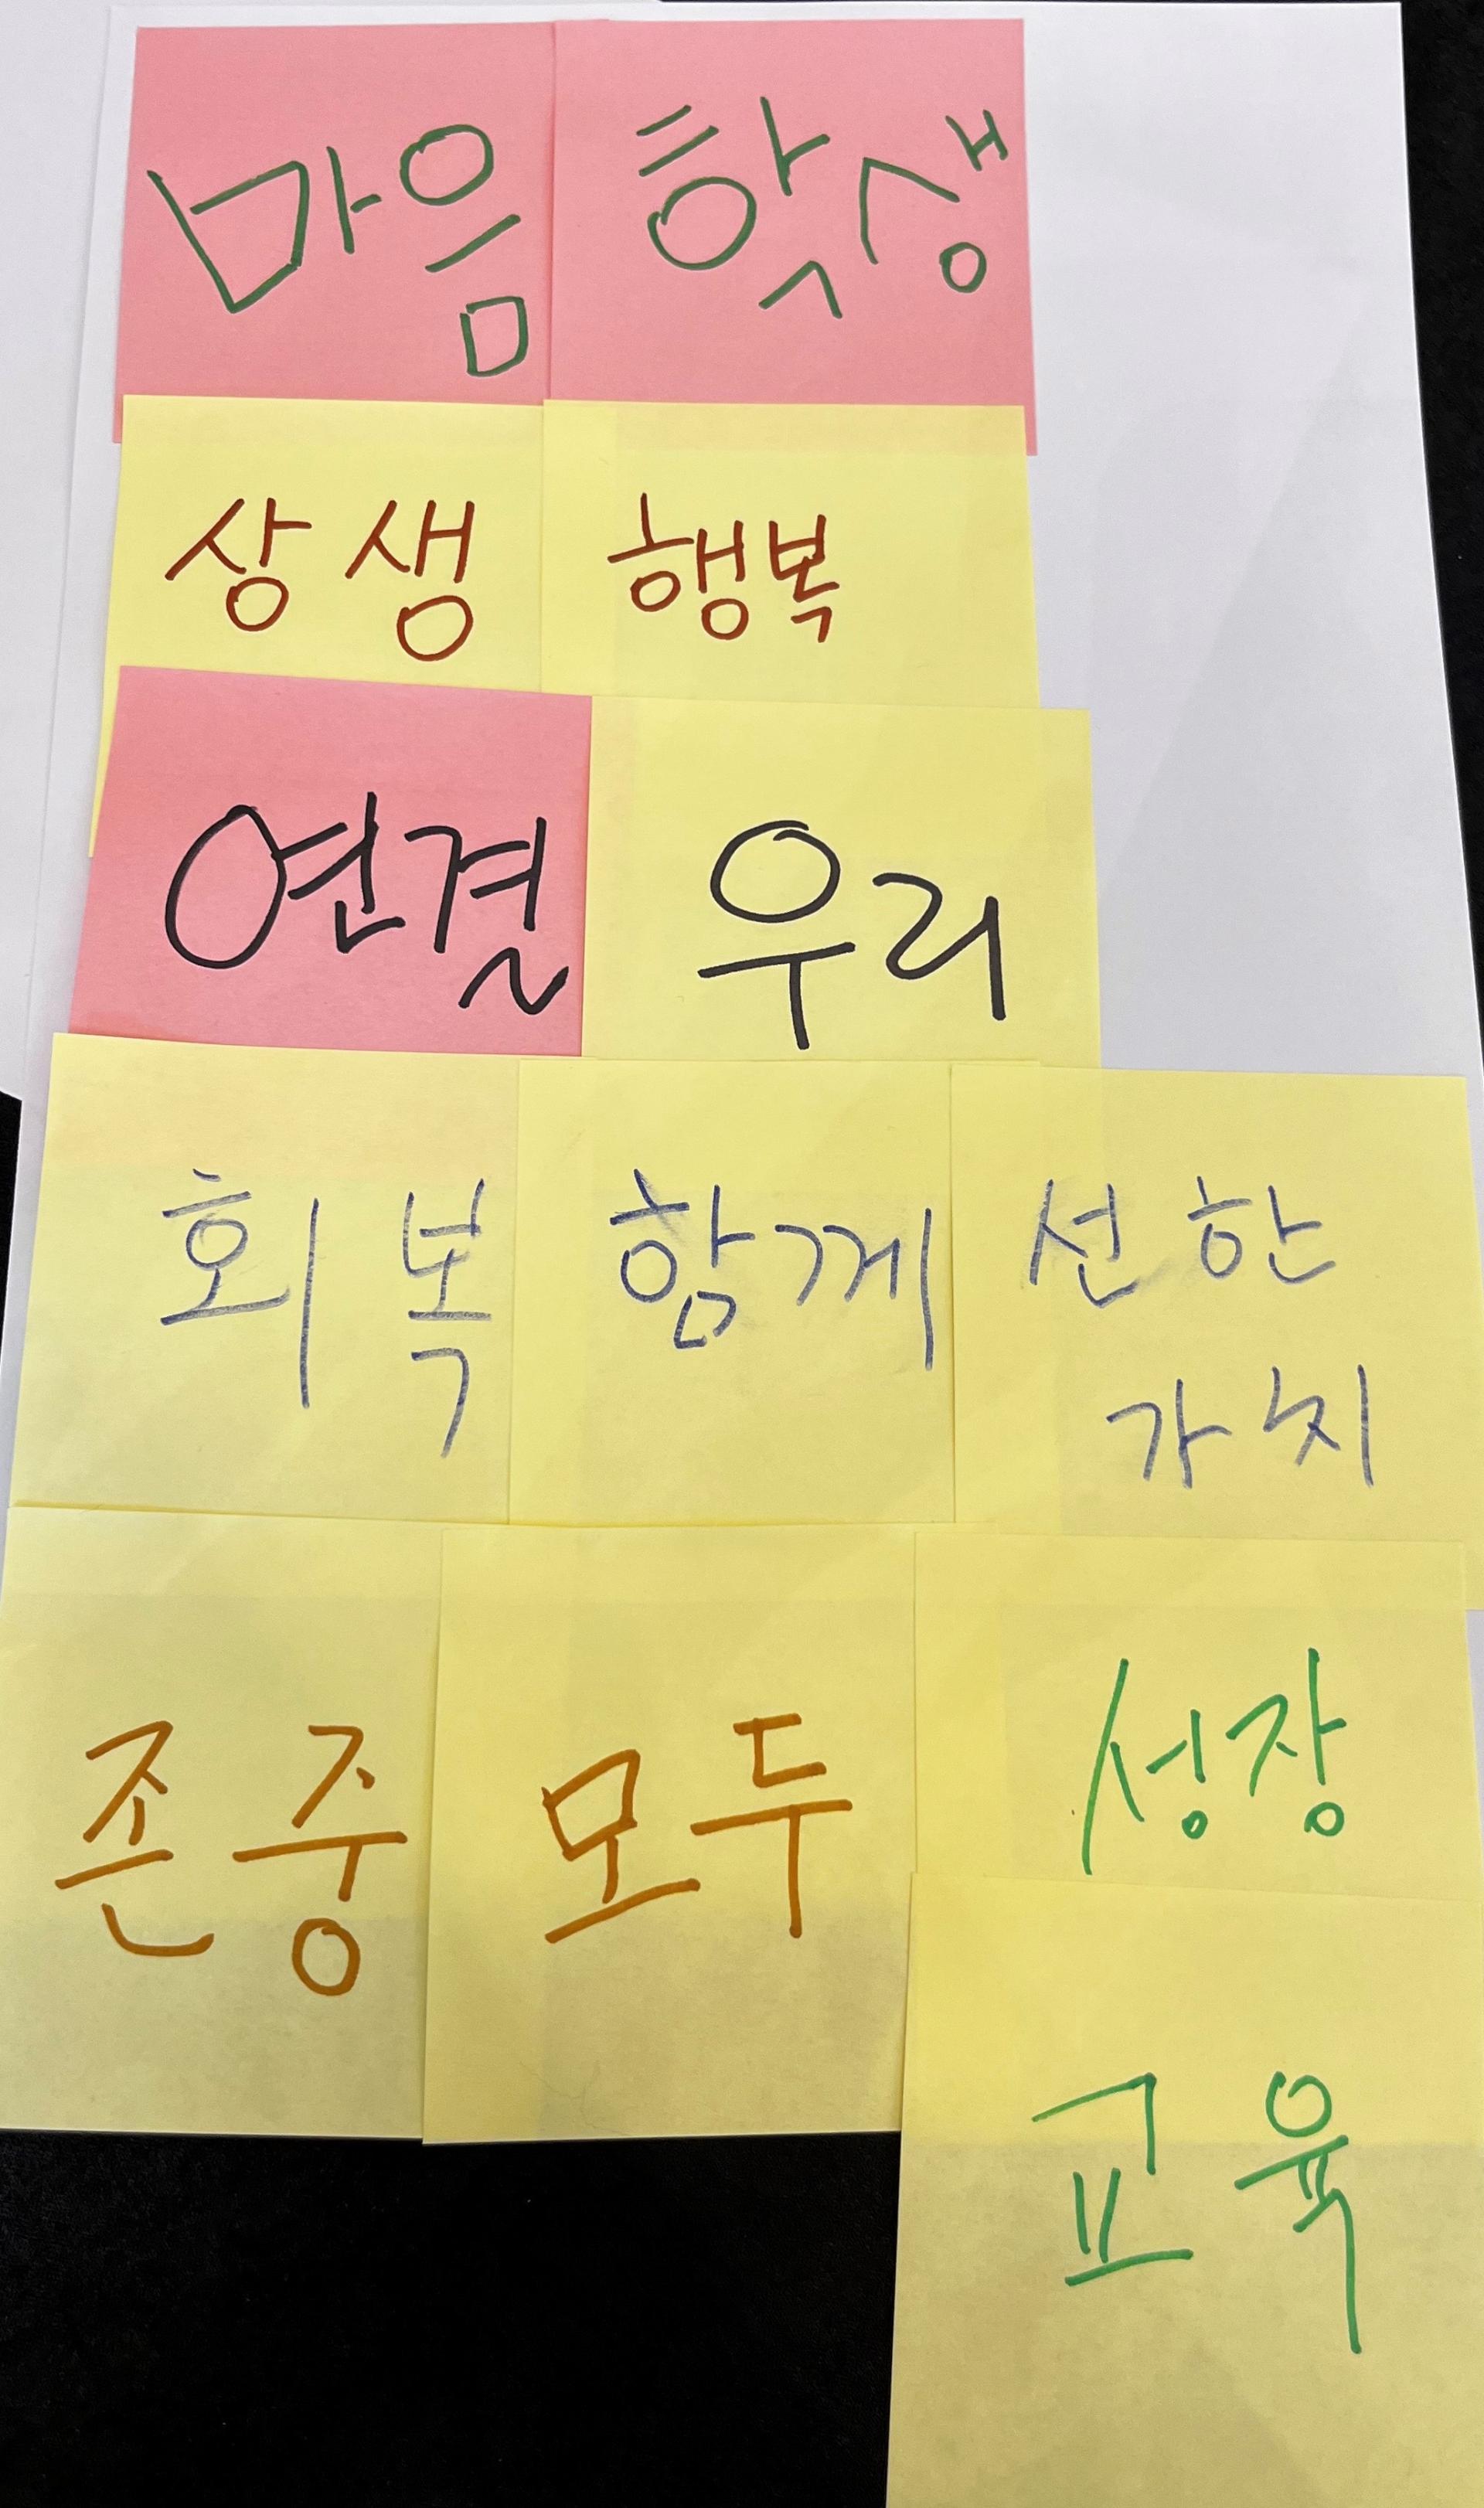 마음 학생
상생 행복
연결 우리
회복 함께 선한
가치
존중 모두 성장
교육